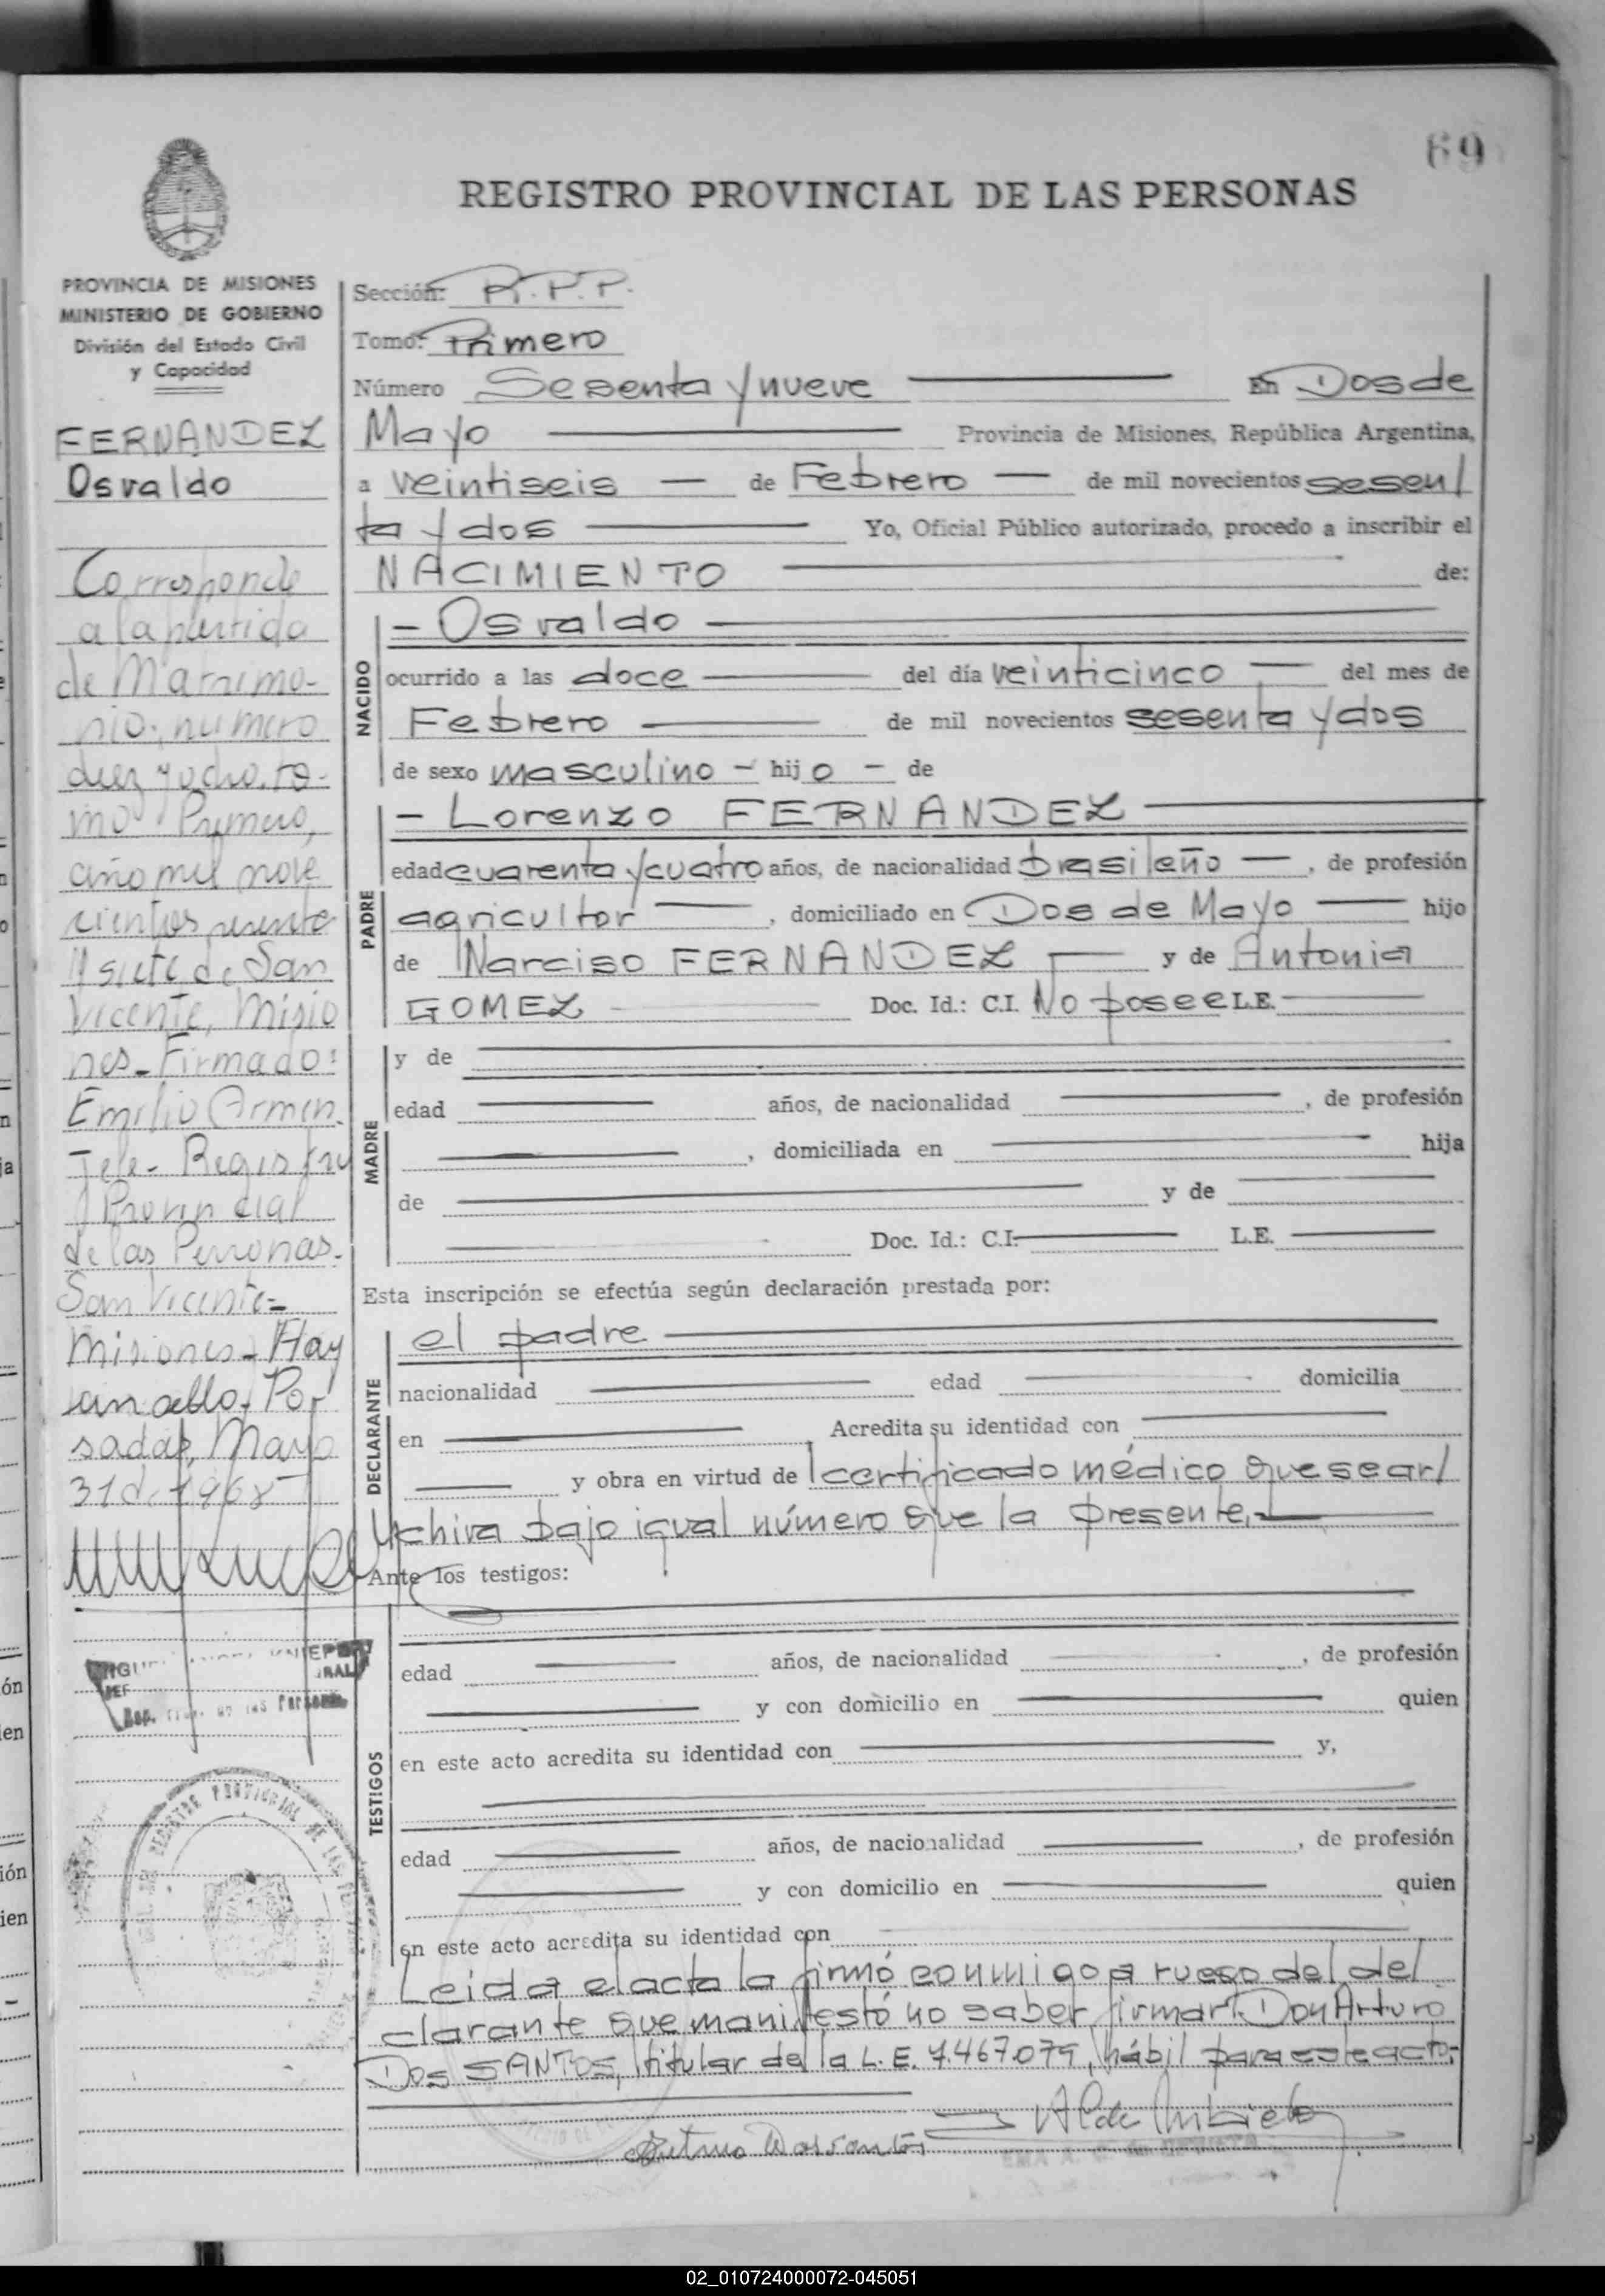 69
REGISTRO PROVINCIAL DE LAS PERSONAS
PROVINCIA DE MISIONES
MINISTERIO DE GOBIERNO
División del Estado Civil
y Capacidad
FERNANDEZ
Osvaldo
Corresponde
a la partida
de Matrimo-
nio, numero
diez y ocho, to-
mo Primero,
año mil nove
cientos sesenta
y siete de San
Vicente, Misio
nes - Firmado:
Emilio Armen.
Jefe - Registro
Provincial
de las Personas.
San Vicente -
Misiones - Hay
un sello. Po-
sadas, Mayo
31 de 1968
Sección: R.P.P.
Tomo: Primero
Número Sesenta y nueve En Dos de
Mayo Provincia de Misiones, República Argentina,
a veintiseis de Febrero de mil novecientos sesen/
ta y dos Yo, Oficial Público autorizado, procedo a inscribir el
NACIMIENTO de:
NACIDO
- Osvaldo
ocurrido a las doce del día veinticinco del mes de
Febrero de mil novecientos sesenta y dos
de sexo masculino - hijo - de
PADRE
- Lorenzo FERNANDEZ
edad cuarenta y cuatro años, de nacionalidad brasileño, de profesión
agricultor, domiciliado en Dos de Mayo hijo
de Narciso FERNANDEZ y de Antonia
GOMEZ Doc. Id.: C.I. No posee L.E.
MADRE
y de
edad años, de nacionalidad , de profesión
, domiciliada en hija
de y de
Doc. Id.: C.I. L.E.
Esta inscripción se efectúa según declaración prestada por:
DECLARANTE
el padre
nacionalidad edad domicilia
en Acredita su identidad con
y obra en virtud de certificado médico que se ar/
chiva bajo igual número que la presente.
Ante los testigos:
TESTIGOS
edad años, de nacionalidad , de profesión
y con domicilio en quien
en este acto acredita su identidad con y,
edad años, de nacionalidad , de profesión
y con domicilio en quien
en este acto acredita su identidad con
Leida el acta la firmó conmigo a ruego del de/
clarante que manifestó no saber firmar: Don Arturo
Dos SANTOS, titular de la L.E. 7.467.079, hábil para este acto.
Arturo Dos santos
02_010724000072-045051